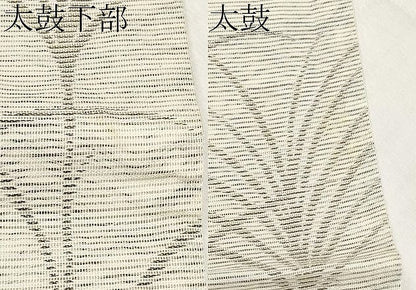 太鼓下部
太鼓